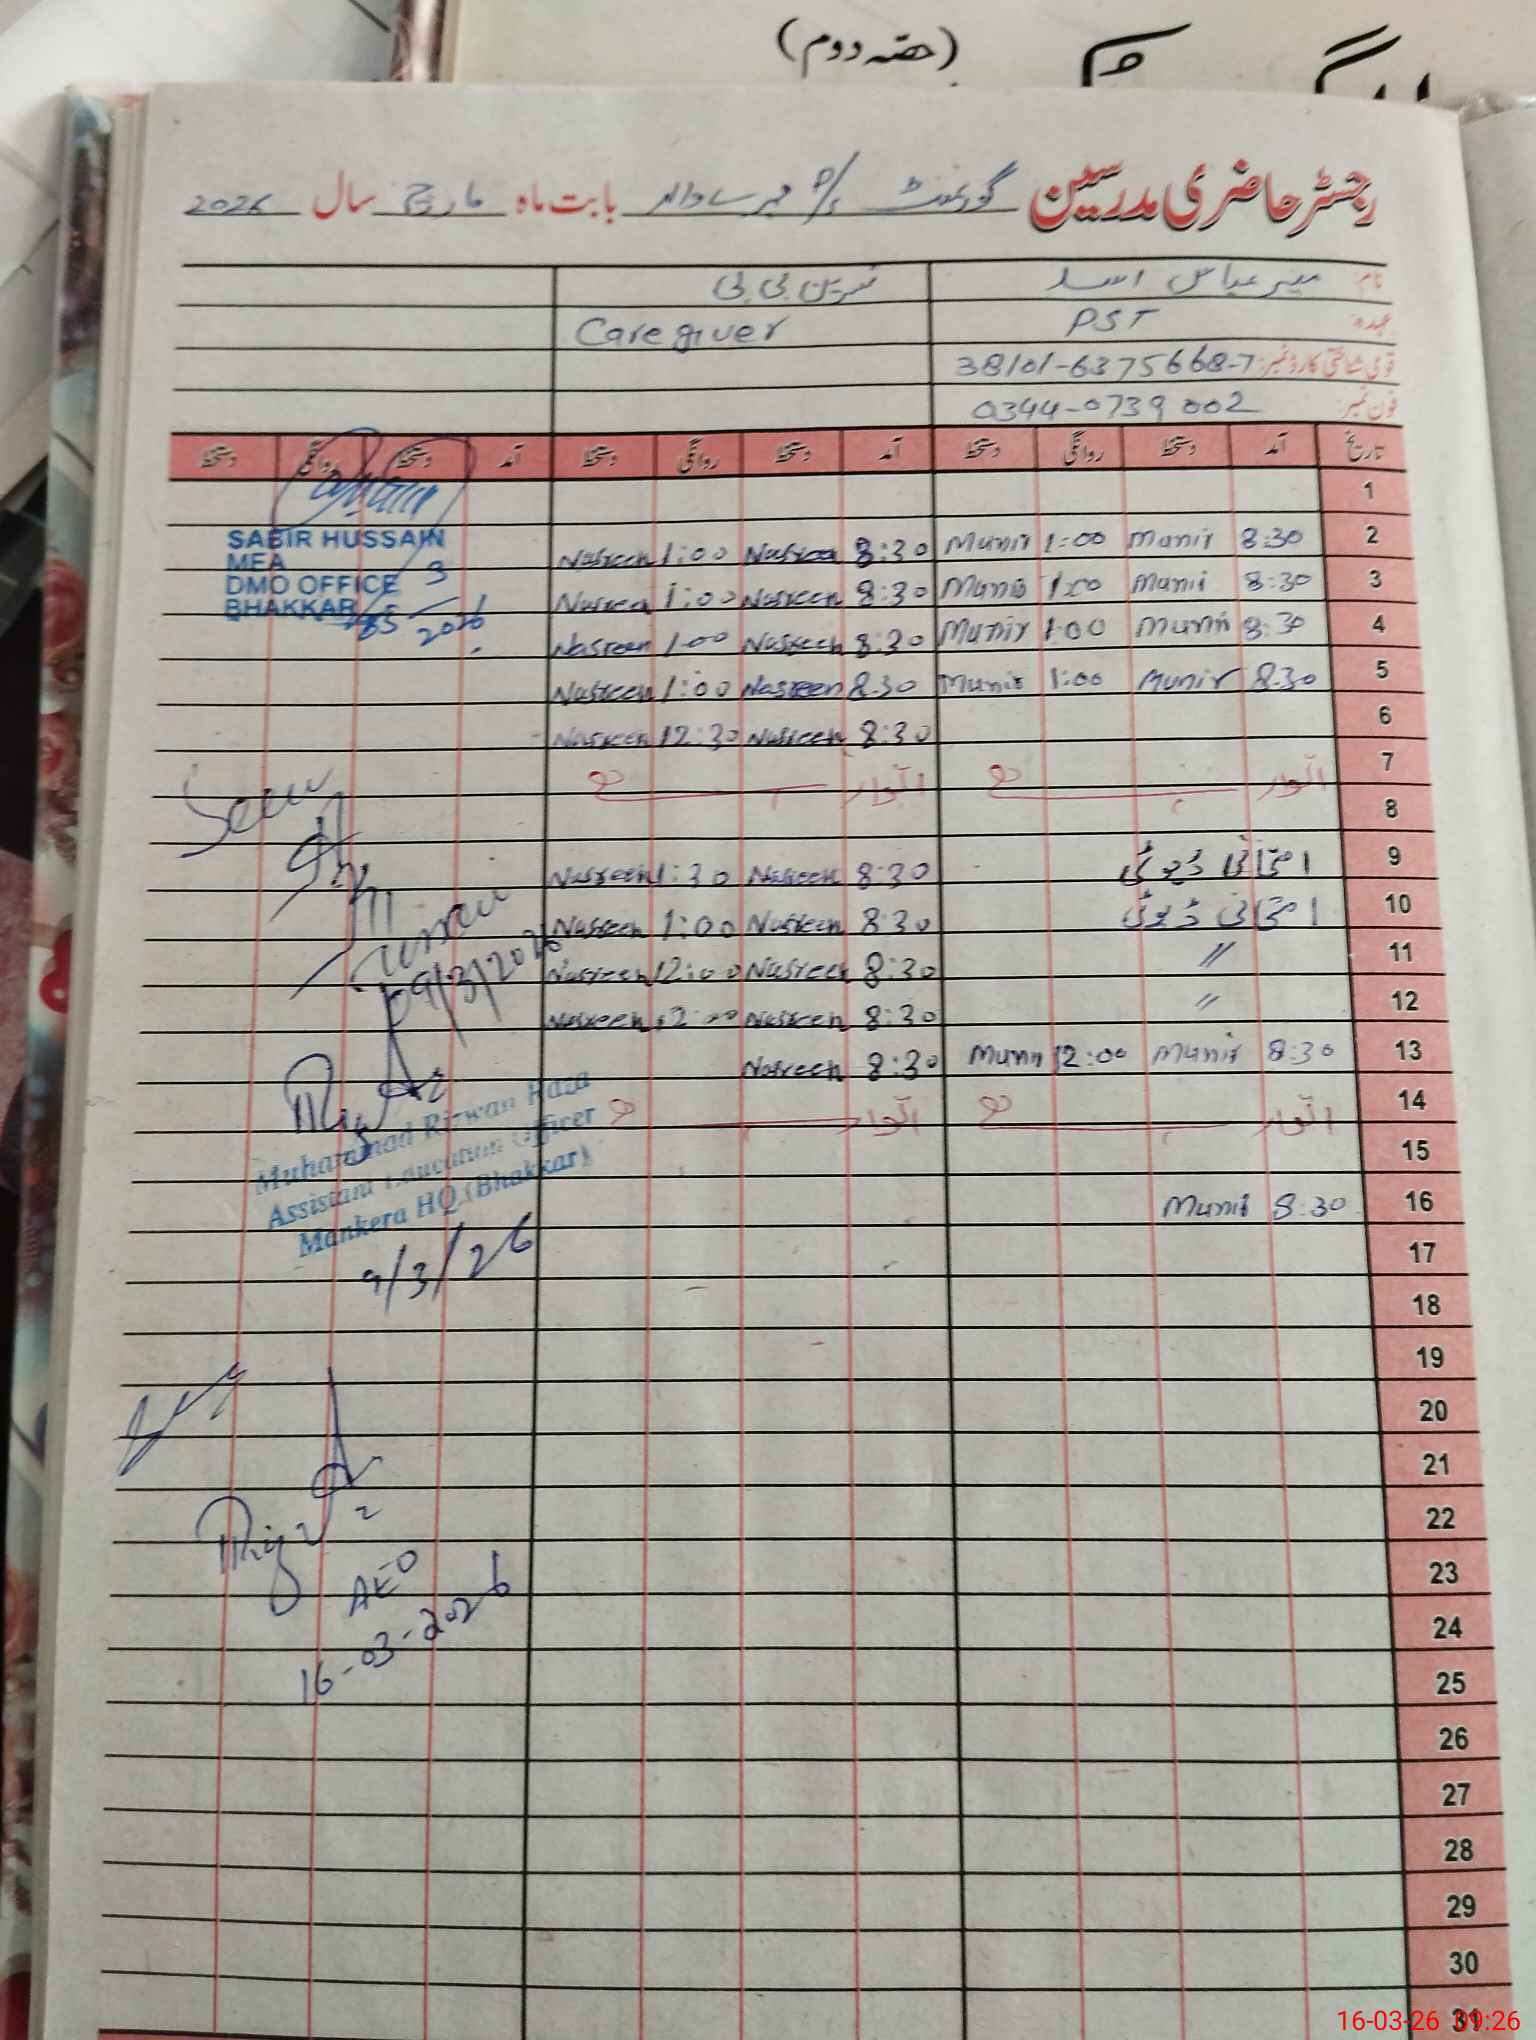 (حصہ دوم)
رجسٹر حاضری مدرسین گورنمنٹ P/S والہ بابت ماہ مارچ سال 2026
نام: منیر عباس اسد نسرین بی بی
عہدہ: PST Caregiver
قومی شناختی کارڈ نمبر: 38101-6375668-7
فون نمبر: 0344-0739002
تاریخ آمد دستخط روانگی دستخط آمد دستخط روانگی دستخط آمد دستخط روانگی دستخط
1
2 8:30 Munir 1:00 Munir 8:30 Nasreen 1:00 Nasreen
3 8:30 Munir 1:00 Munir 8:30 Nasreen 1:00 Nasreen
4 8:30 Munir 1:00 Munir 8:30 Nasreen 1:00 Nasreen
5 8:30 Munir 1:00 Munir 8:30 Nasreen 1:00 Nasreen
6 8:30 Nasreen 12:30 Nasreen
7 اتوار اتوار
8
9 امتحانی ڈیوٹی 8:30 Nasreen 1:30 Nasreen
10 امتحانی ڈیوٹی 8:30 Nasreen 1:00 Nasreen
11 〃 8:30 Nasreen 12:00 Nasreen
12 〃 8:30 Nasreen 12:00 Nasreen
13 8:30 Munir 12:00 Munir 8:30 Nasreen
14 اتوار اتوار
15
16 8:30 Munir
17
18
19
20
21
22
23
24
25
26
27
28
29
30
31
SABIR HUSSAIN
MEA
DMO OFFICE
BHAKKAR
3
2026
Seen
09/3/2026
Muhammad Rizwan Raza
Assistant Education Officer
Mankera HQ (Bhakkar)
9/3/26
AEO
16-03-2026
16-03-26 09:26